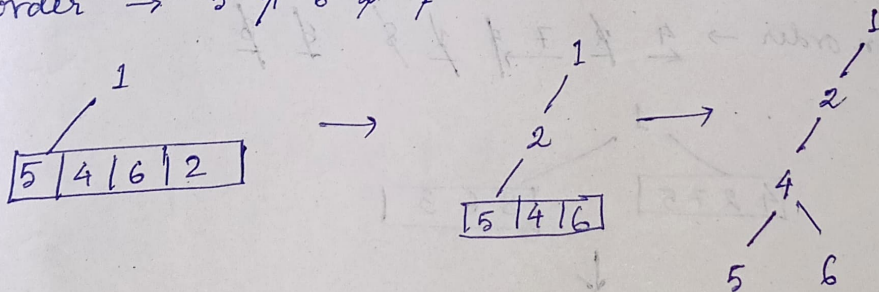 order →
1
5 | 4 | 6 | 2
→
1
2
5 | 4 | 6
→
1
2
4
5 6